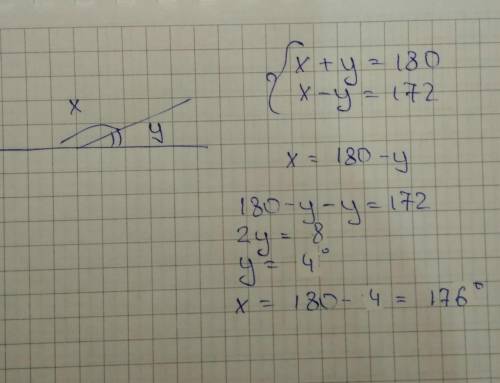 x
y
x + y = 180
x - y = 172
x = 180 - y
180 - y - y = 172
2y = 8
y = 4°
x = 180 - 4 = 176°